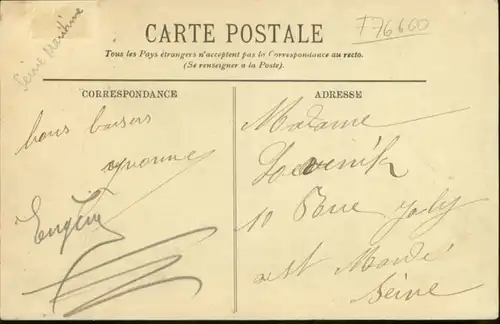 Seine Maritime
F76600
CARTE POSTALE
Tous les Pays étrangers n'acceptent pas la Correspondance au recto.
(Se renseigner a la Poste).
CORRESPONDANCE
ADRESSE
bons baisers
yvonne
Eugène
Madame
10 Rue
Mandé
Seine